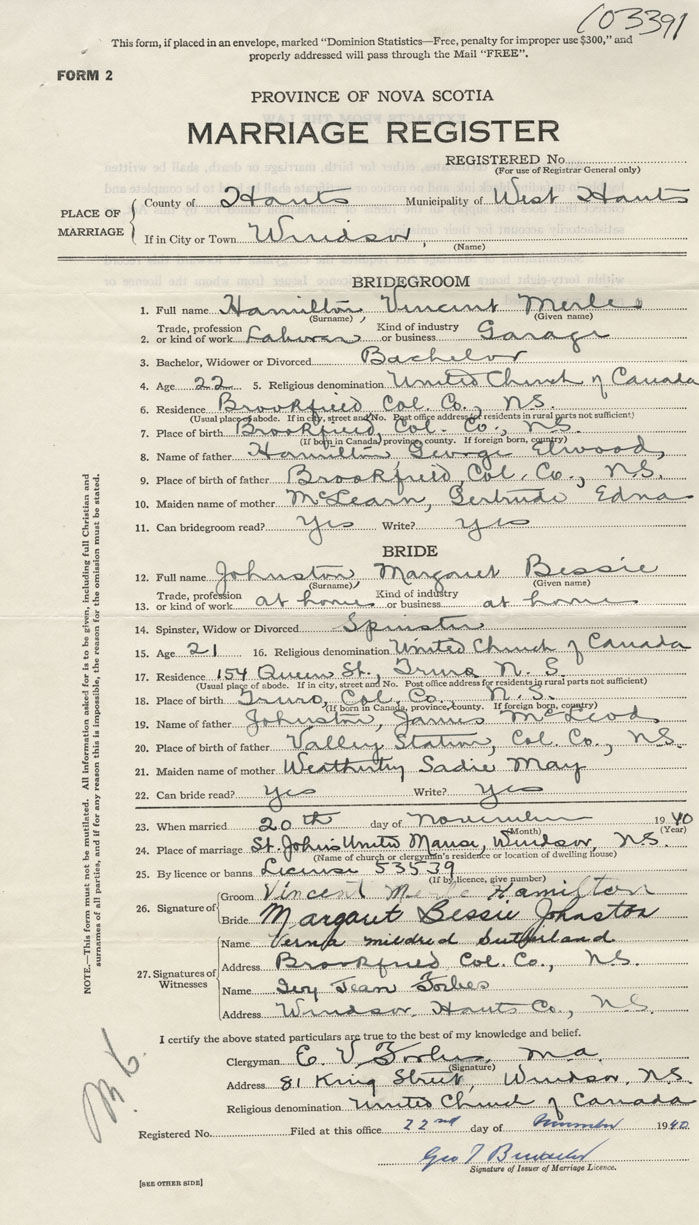 103391
This form, if placed in an envelope, marked "Dominion Statistics—Free, penalty for improper use $300," and
properly addressed will pass through the Mail "FREE".
FORM 2
PROVINCE OF NOVA SCOTIA
MARRIAGE REGISTER
REGISTERED No.
(For use of Registrar General only)
PLACE OF MARRIAGE
County of Hants Municipality of West Hants
If in City or Town Windsor,
(Name)
BRIDEGROOM
1. Full name Hamilton, Vincent Merle
(Surname) (Given name)
2. Trade, profession or kind of work Laborer Kind of industry or business Garage
3. Bachelor, Widower or Divorced Bachelor
4. Age 22 5. Religious denomination United Church of Canada
6. Residence Brookfield Col. Co., N.S.
(Usual place of abode. If in city, street and No. Post office address for residents in rural parts not sufficient)
7. Place of birth Brookfield, Col. Co., N.S.
(If born in Canada, province, county. If foreign born, country)
8. Name of father Hamilton George Elwood,
9. Place of birth of father Brookfield, Col. Co., N.S.
10. Maiden name of mother McLearn, Gertrude Edna
11. Can bridegroom read? Yes Write? Yes
BRIDE
12. Full name Johnston, Margaret Bessie
(Surname) (Given name)
13. Trade, profession or kind of work at home Kind of industry or business at home
14. Spinster, Widow or Divorced Spinster
15. Age 21 16. Religious denomination United Church of Canada
17. Residence 154 Queen St., Truro N.S.
(Usual place of abode. If in city, street and No. Post office address for residents in rural parts not sufficient)
18. Place of birth Truro, Col. Co., N.S.
(If born in Canada, province, county. If foreign born, country)
19. Name of father Johnston, James McLeod
20. Place of birth of father Valley Station, Col. Co., N.S.
21. Maiden name of mother Sadie May
22. Can bride read? Yes Write? Yes
23. When married 20th day of November 1940
(Month) (Year)
24. Place of marriage St. John's United Manse, Windsor, N.S.
(Name of church or clergyman's residence or location of dwelling house)
25. By licence or banns License 53539
(If by licence, give number)
26. Signature of
Groom Vincent Merle Hamilton
Bride Margaret Bessie Johnston
27. Signatures of Witnesses
Name Verna Mildred Sutherland
Address Brookfield Col. Co., N.S.
Name Jean Forbes
Address Windsor, Hants Co., N.S.
I certify the above stated particulars are true to the best of my knowledge and belief.
Clergyman E. V. Forbes, M.A.
(Signature)
Address 81 King Street, Windsor, N.S.
Religious denomination United Church of Canada
Registered No. Filed at this office 22nd day of November 1940
Geo
Signature of Issuer of Marriage Licence.
[SEE OTHER SIDE]
NOTE.—This form must not be mutilated. All information asked for is to be given, including full Christian and
surnames of all parties, and if for any reason this is impossible, the reason for the omission must be stated.